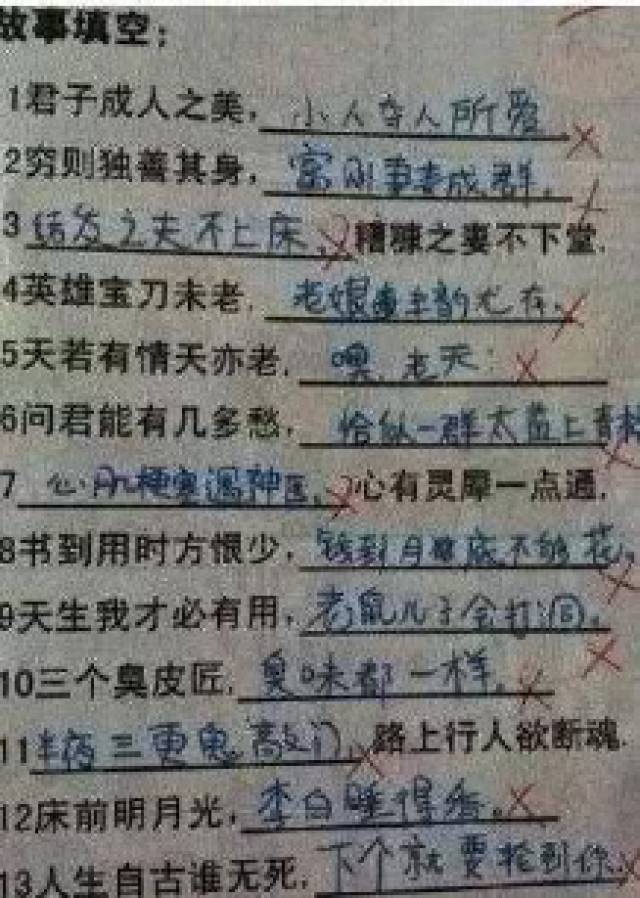 故事填空：
1君子成人之美，小人夺人所爱
2穷则独善其身，富则妻妾成群。
3结发之夫不上床，糟糠之妻不下堂.
4英雄宝刀未老，老娘尤存.
5天若有情天亦老，嘿 老天
6问君能有几多愁，恰似一群太监上青楼
7心肌梗塞遇神医，心有灵犀一点通.
8书到用时方恨少，钱到月底不够花，
9天生我才必有用，老鼠儿子会打洞。
10三个臭皮匠，臭味都一样。
11半夜三更鬼敲门，路上行人欲断魂.
12床前明月光，李白睡得香。
13人生自古谁无死，下个就要抢到你